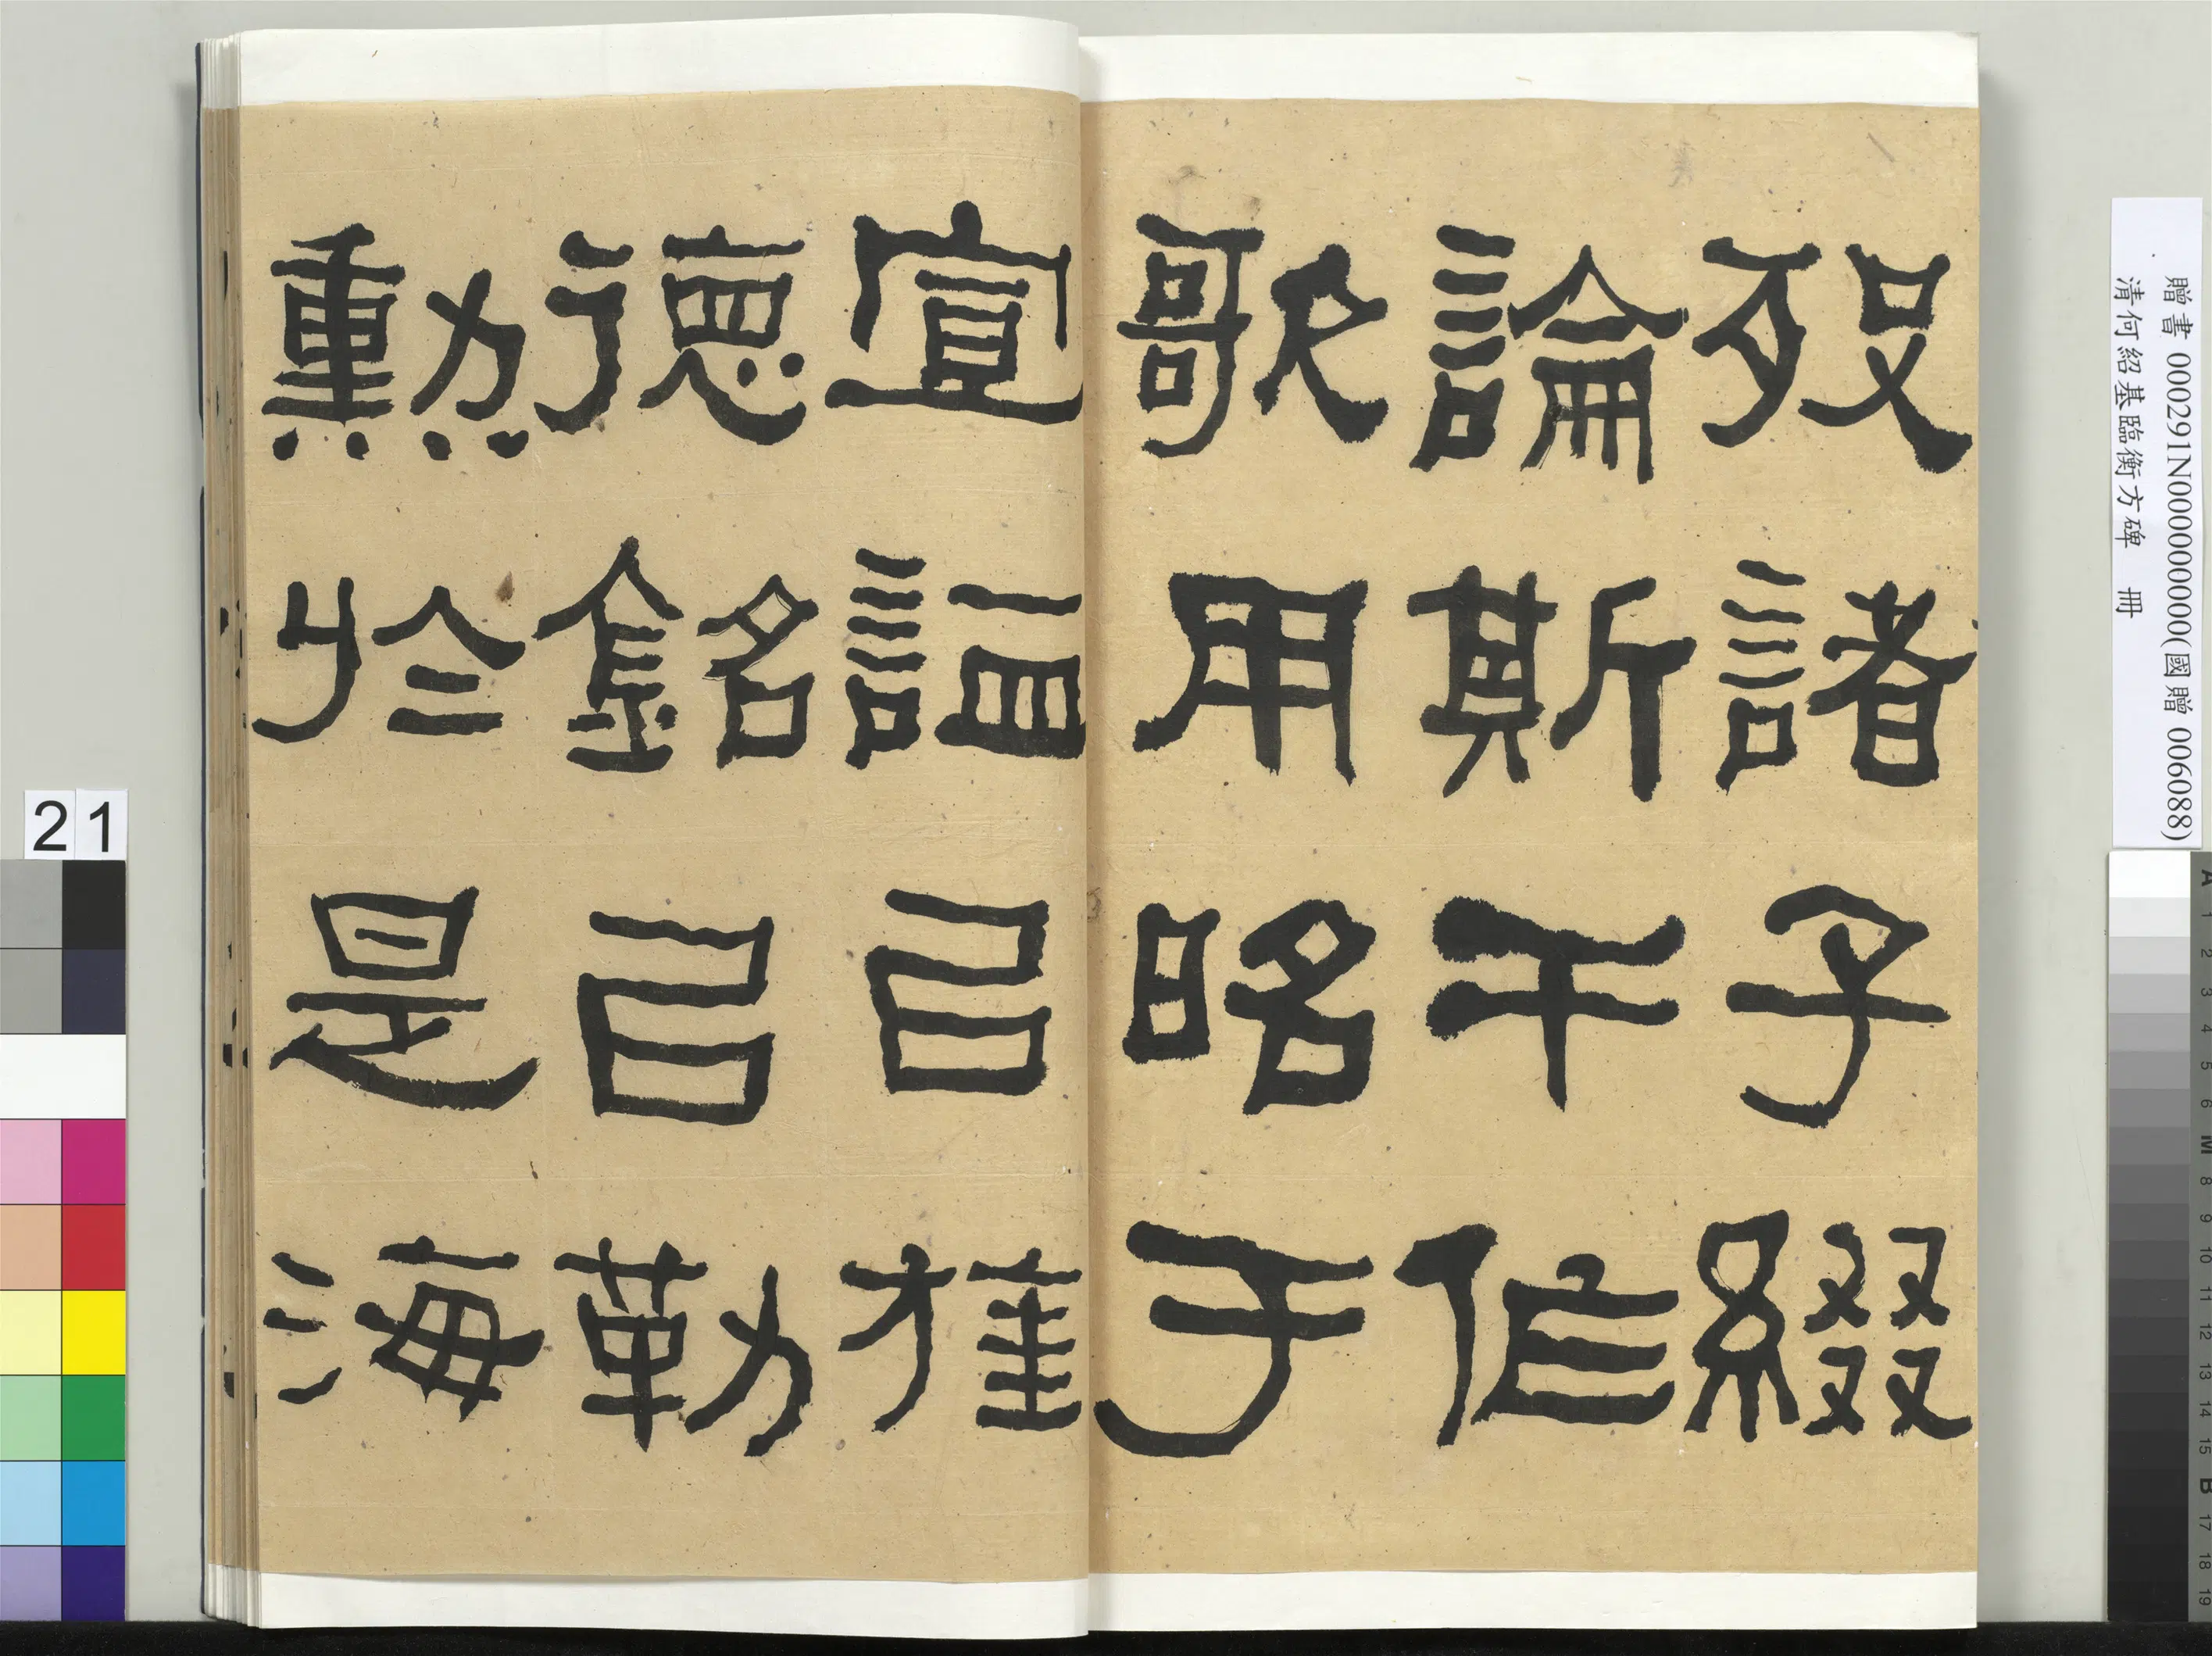 歿諸子綴
論斯干作
歌用昭于
宣謚㠯旌
德銘㠯勒
勳於是海
贈書 000291N000000000(國贈 006088)
清何紹基臨衡方碑 冊
21
A 1 2 3 4 5 6 M 8 9 10 11 12 13 14 15 B 17 18 19